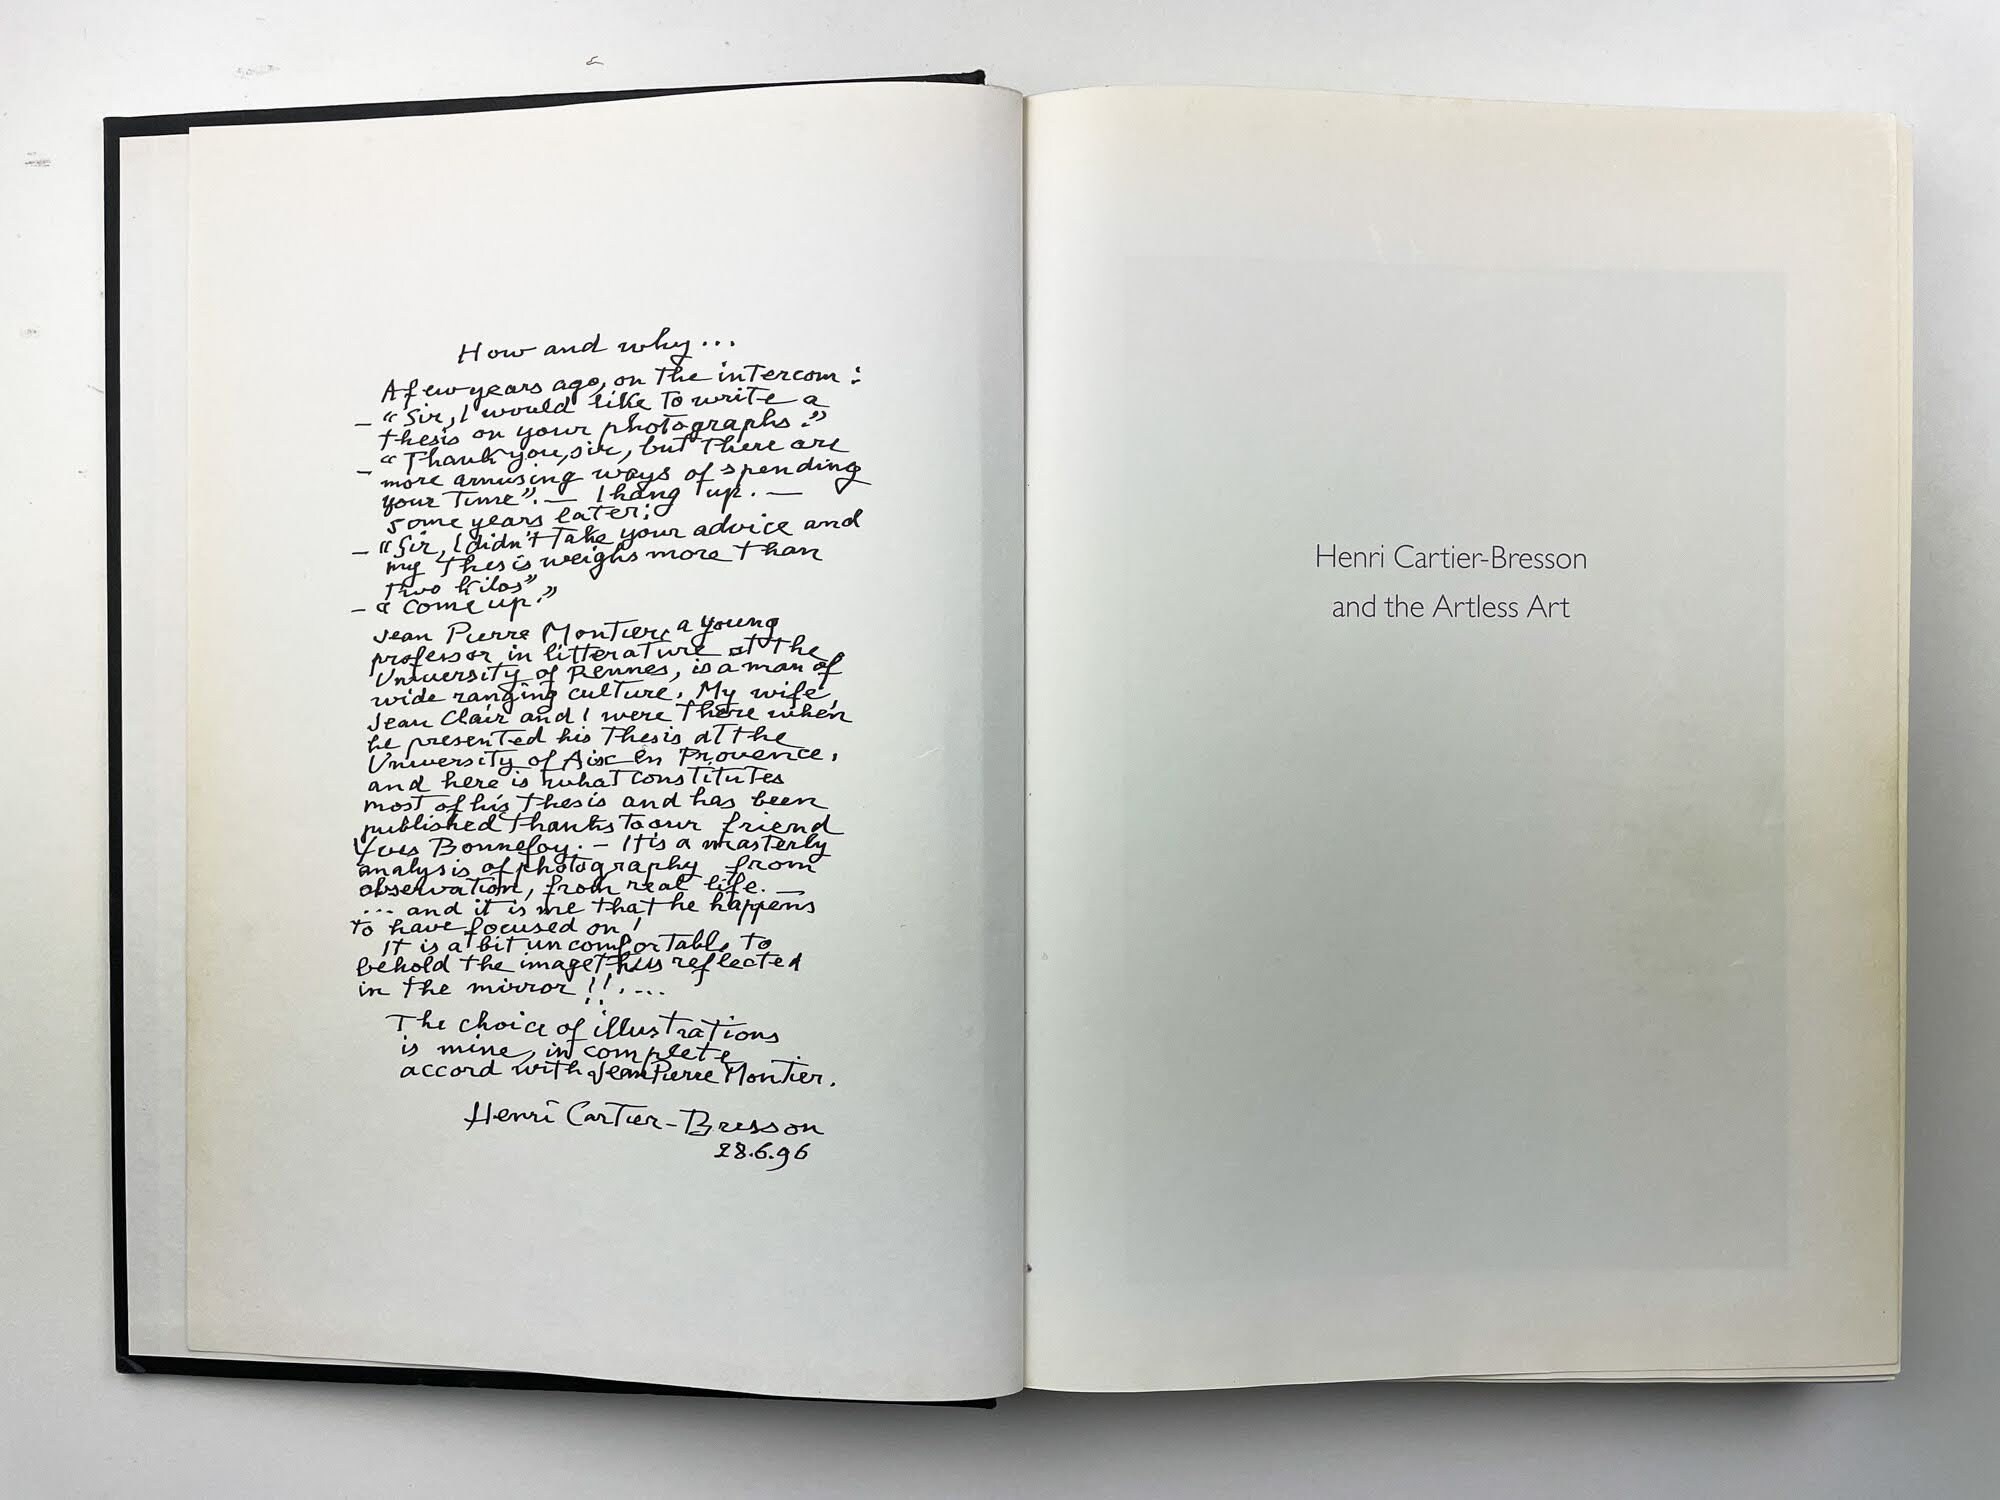 How and why...
A few years ago, on the intercom :
– “Sir, I would like to write a
thesis on your photographs.”
– “Thank you, sir, but there are
more amusing ways of spending
your time”. — I hang up. —
Some years later:
– “Sir, I didn't take your advice and
my thesis weighs more than
two kilos”
– “Come up.”
Jean Pierre Montier, a young
professor in litterature at the
University of Rennes, is a man of
wide ranging culture. My wife,
Jean Clair and I were there when
he presented his thesis at the
University of Aix en Provence,
and here is what constitutes
most of his thesis and has been
published thanks to our friend
Yves Bonnefoy. – It's a masterly
analysis of photography from
observation, from real life. —
... and it is me that he happens
to have focused on!
It is a bit uncomfortable to
behold the image thus reflected
in the mirror !!....
The choice of illustrations
is mine, in complete
accord with Jean Pierre Montier.
Henri Cartier-Bresson
28.6.96
Henri Cartier-Bresson
and the Artless Art